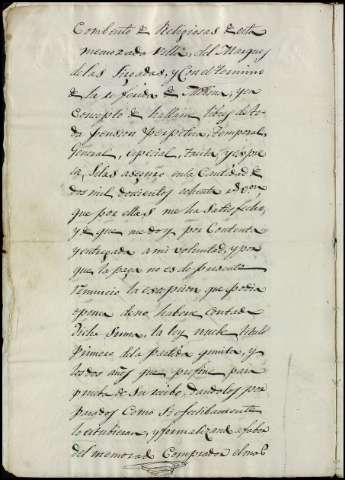 Combento de Religiosas de esta
memorada Villa, del Marques
de las Torres, y Con el termino
de la referida de Molina, y en
Concepto de hallarse libre de to-
da pension perpetua, temporal,
General, especial, tacita, y espre-
sa, Selas aseguro en la Cantidad de
dos mil docientos ochenta rs. von.
que por ellas me ha Satisfecho,
y de que me doy por Contenta
y entregada a mi voluntad, y por
que la paga no es de presente
renuncio la escepcion que podia
oponer de no haberse contado
dicha Suma, la ley nueve titulo
Primero de la partida quinta, y
los dos años que prefine para
prueba de Su recibo, dandolos por
pasados Como Si efectibamente
lo estubieran, y formalizando a fabor
del memorado Comprador el mas